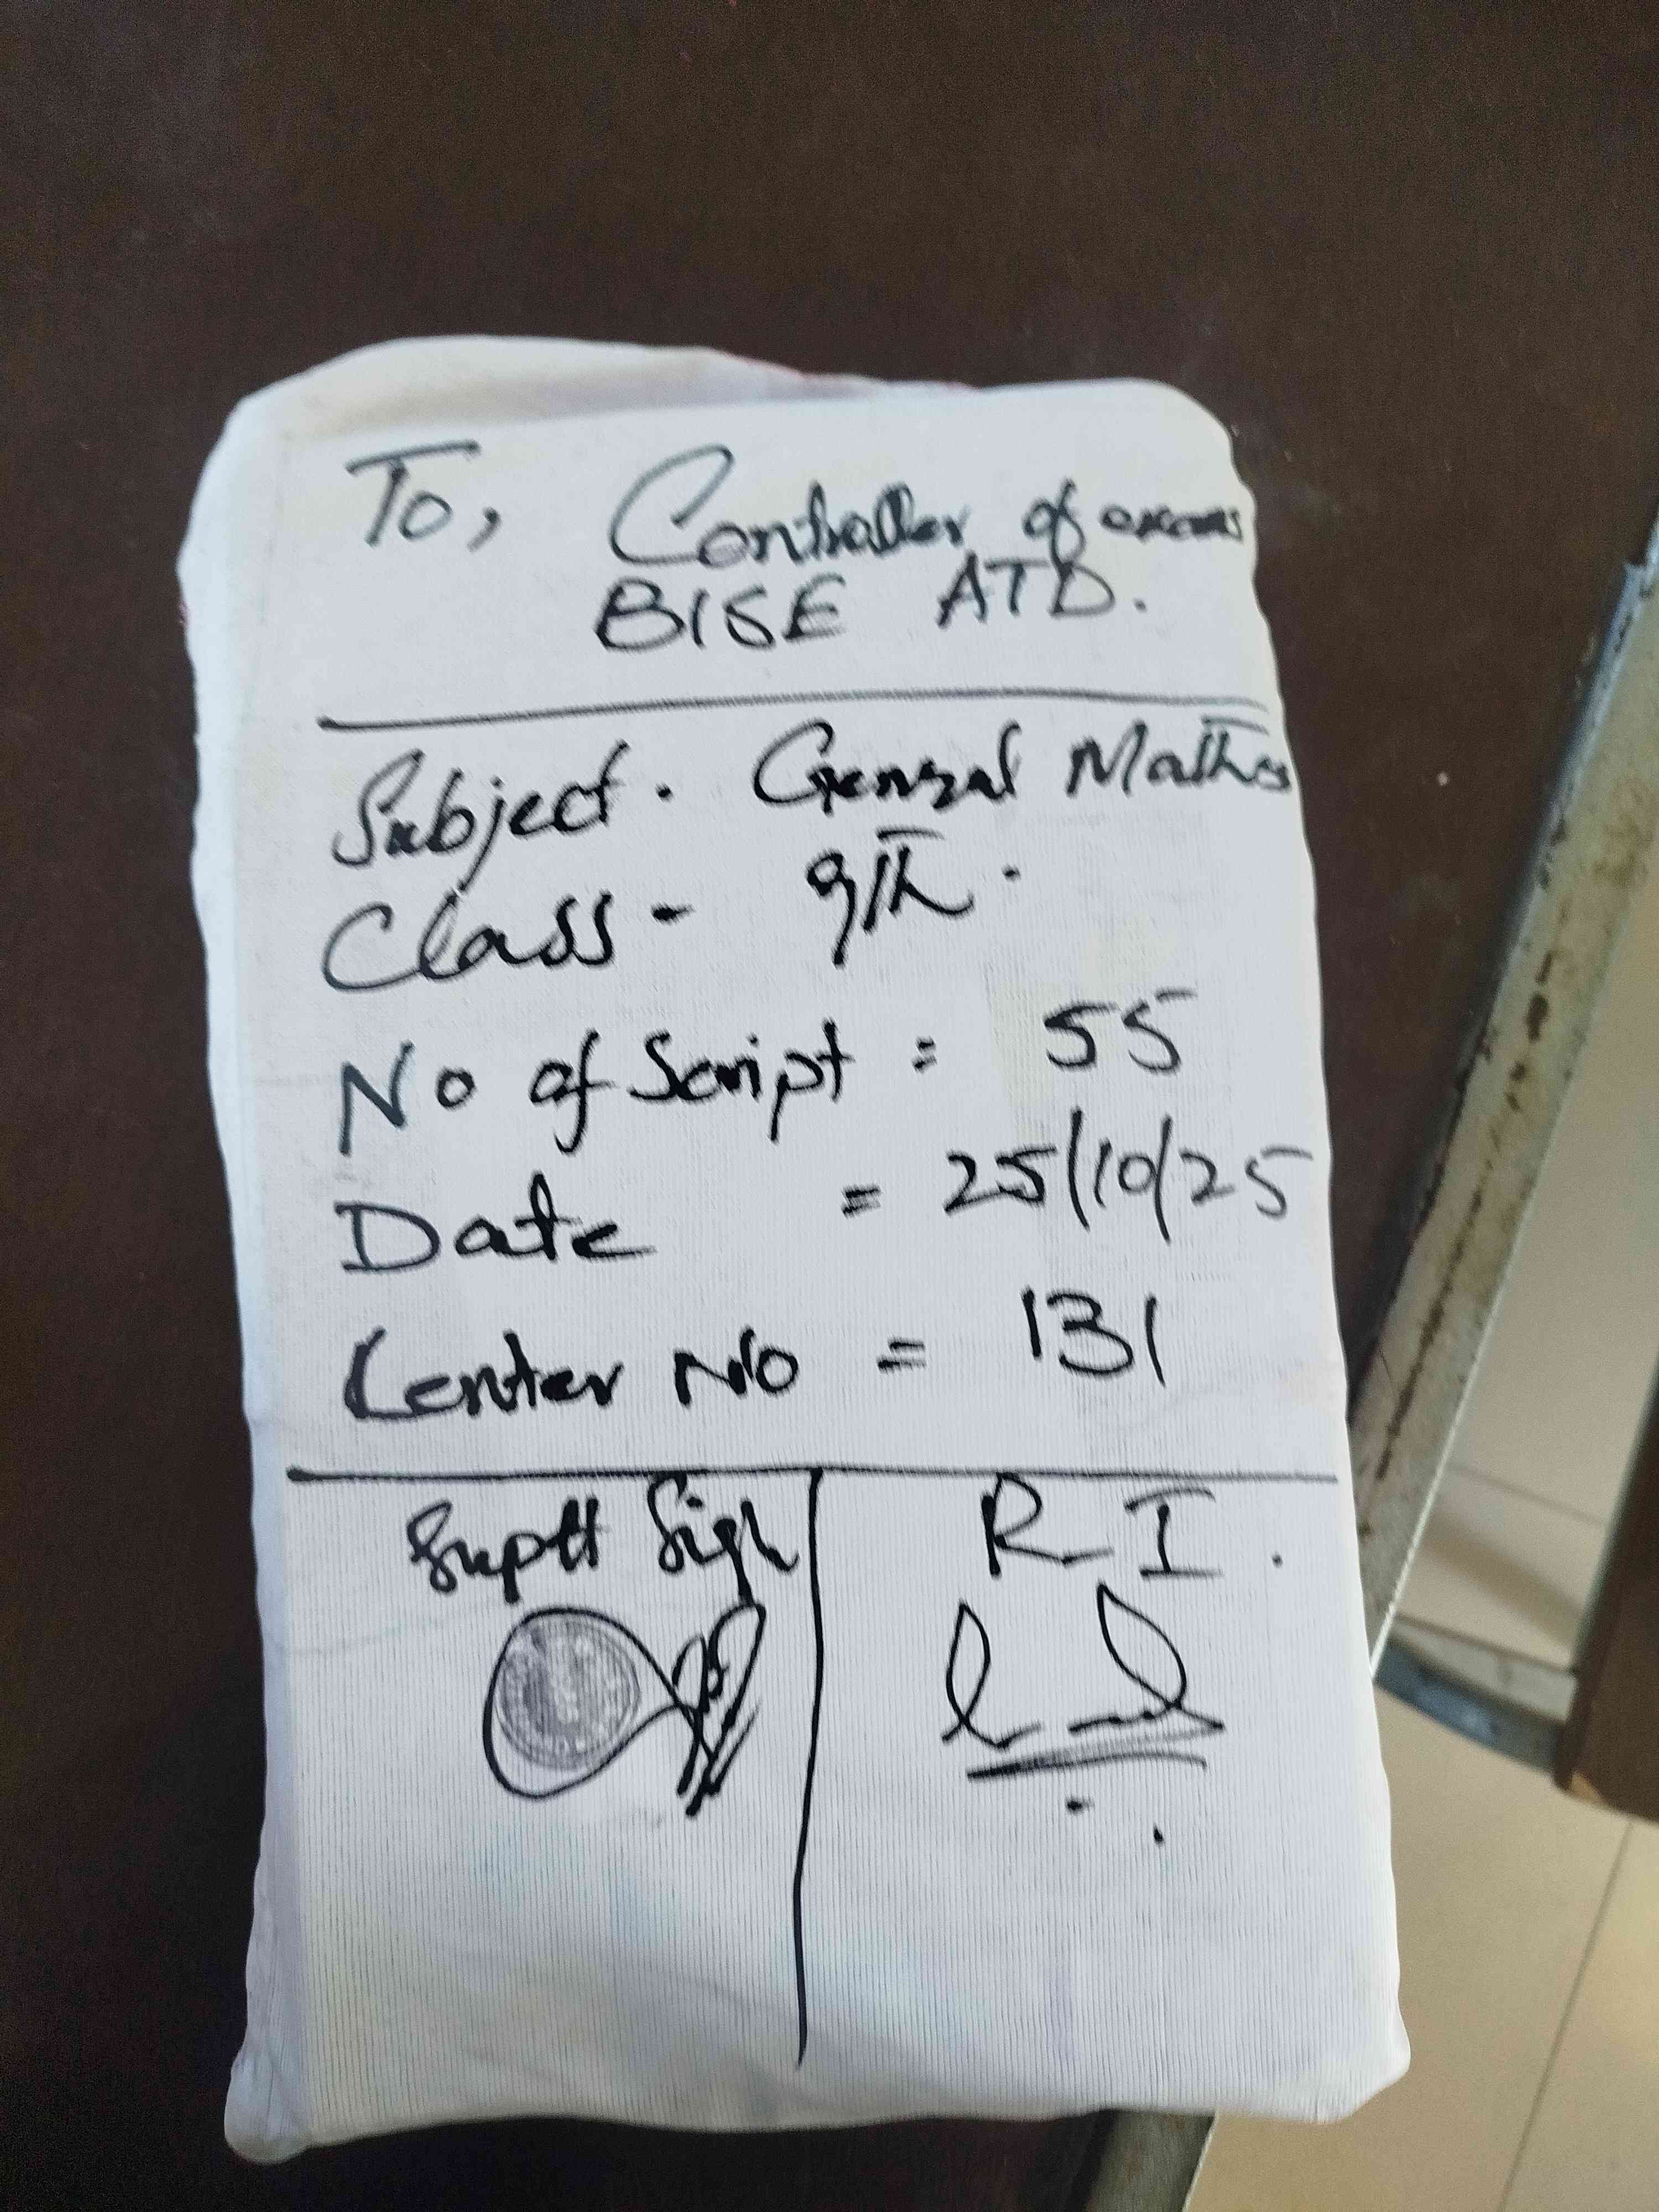 To, Controller of exams
BISE ATD.
Subject. General Maths
Class - 9th.
No of Script = 55
Date = 25/10/25
Center No = 131
Suptt Sign
R_I.